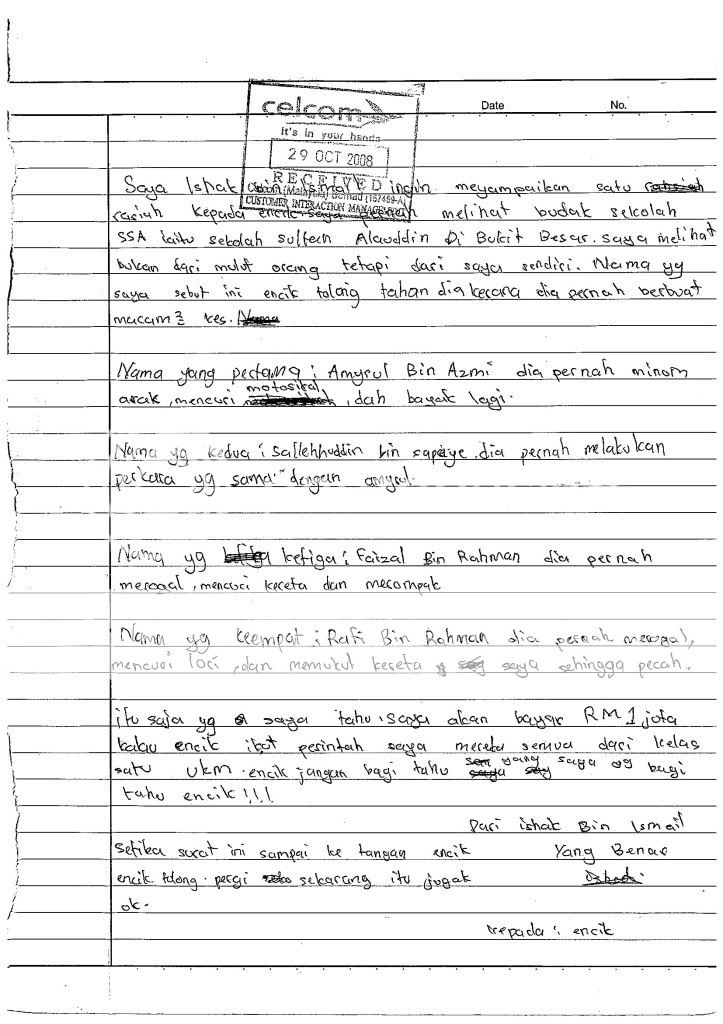 Date No.
celcom
it's in your hands
29 OCT 2008
RECEIVED
Celcom (Malaysia) Berhad (167469-A)
CUSTOMER INTERACTION MANAGEMENT
Saya Ishak bin Ismail ingin meyampaikan satu
rasiah kepada melihat budak sekolah
SSA iaitu sekolah sultan Alauddin Di Bukit Besar. saya melihat
bukan dari mulut orang tetapi dari saya sendiri. Nama yg
saya sebut ini encik tolong tahan dia kerana dia pernah berbuat
macam2 kes.
Nama yang pertama : Amyrul Bin Azmi dia pernah minom
arak, mencuri motosikal, dah bayak lagi.
Nama yg kedua : Sallehhuddin bin sapeiye dia pernah melakukan
perkara yg sama dengan amyrul.
Nama yg ketiga : Faizal Bin Rahman dia pernah
merogal, mencuri kereta dan merompak
Nama yg keempat : Rafi Bin Rahman dia pernah merogal,
mencuri lori, dan memukul kereta saya sehingga pecah.
itu saja yg saya tahu. saya akan bayar RM 1 jota
kalau encik ikot perintah saya mereka semua dari kelas
satu UKM. encik jangan bagi tahu yang saya yg bagi
tahu encik!!!
Dari ishak Bin Ismail
setika surat ini sampai ke tangan encik Yang Benar
encik tolong pergi sekarang itu jugak
ok.
kepada : encik